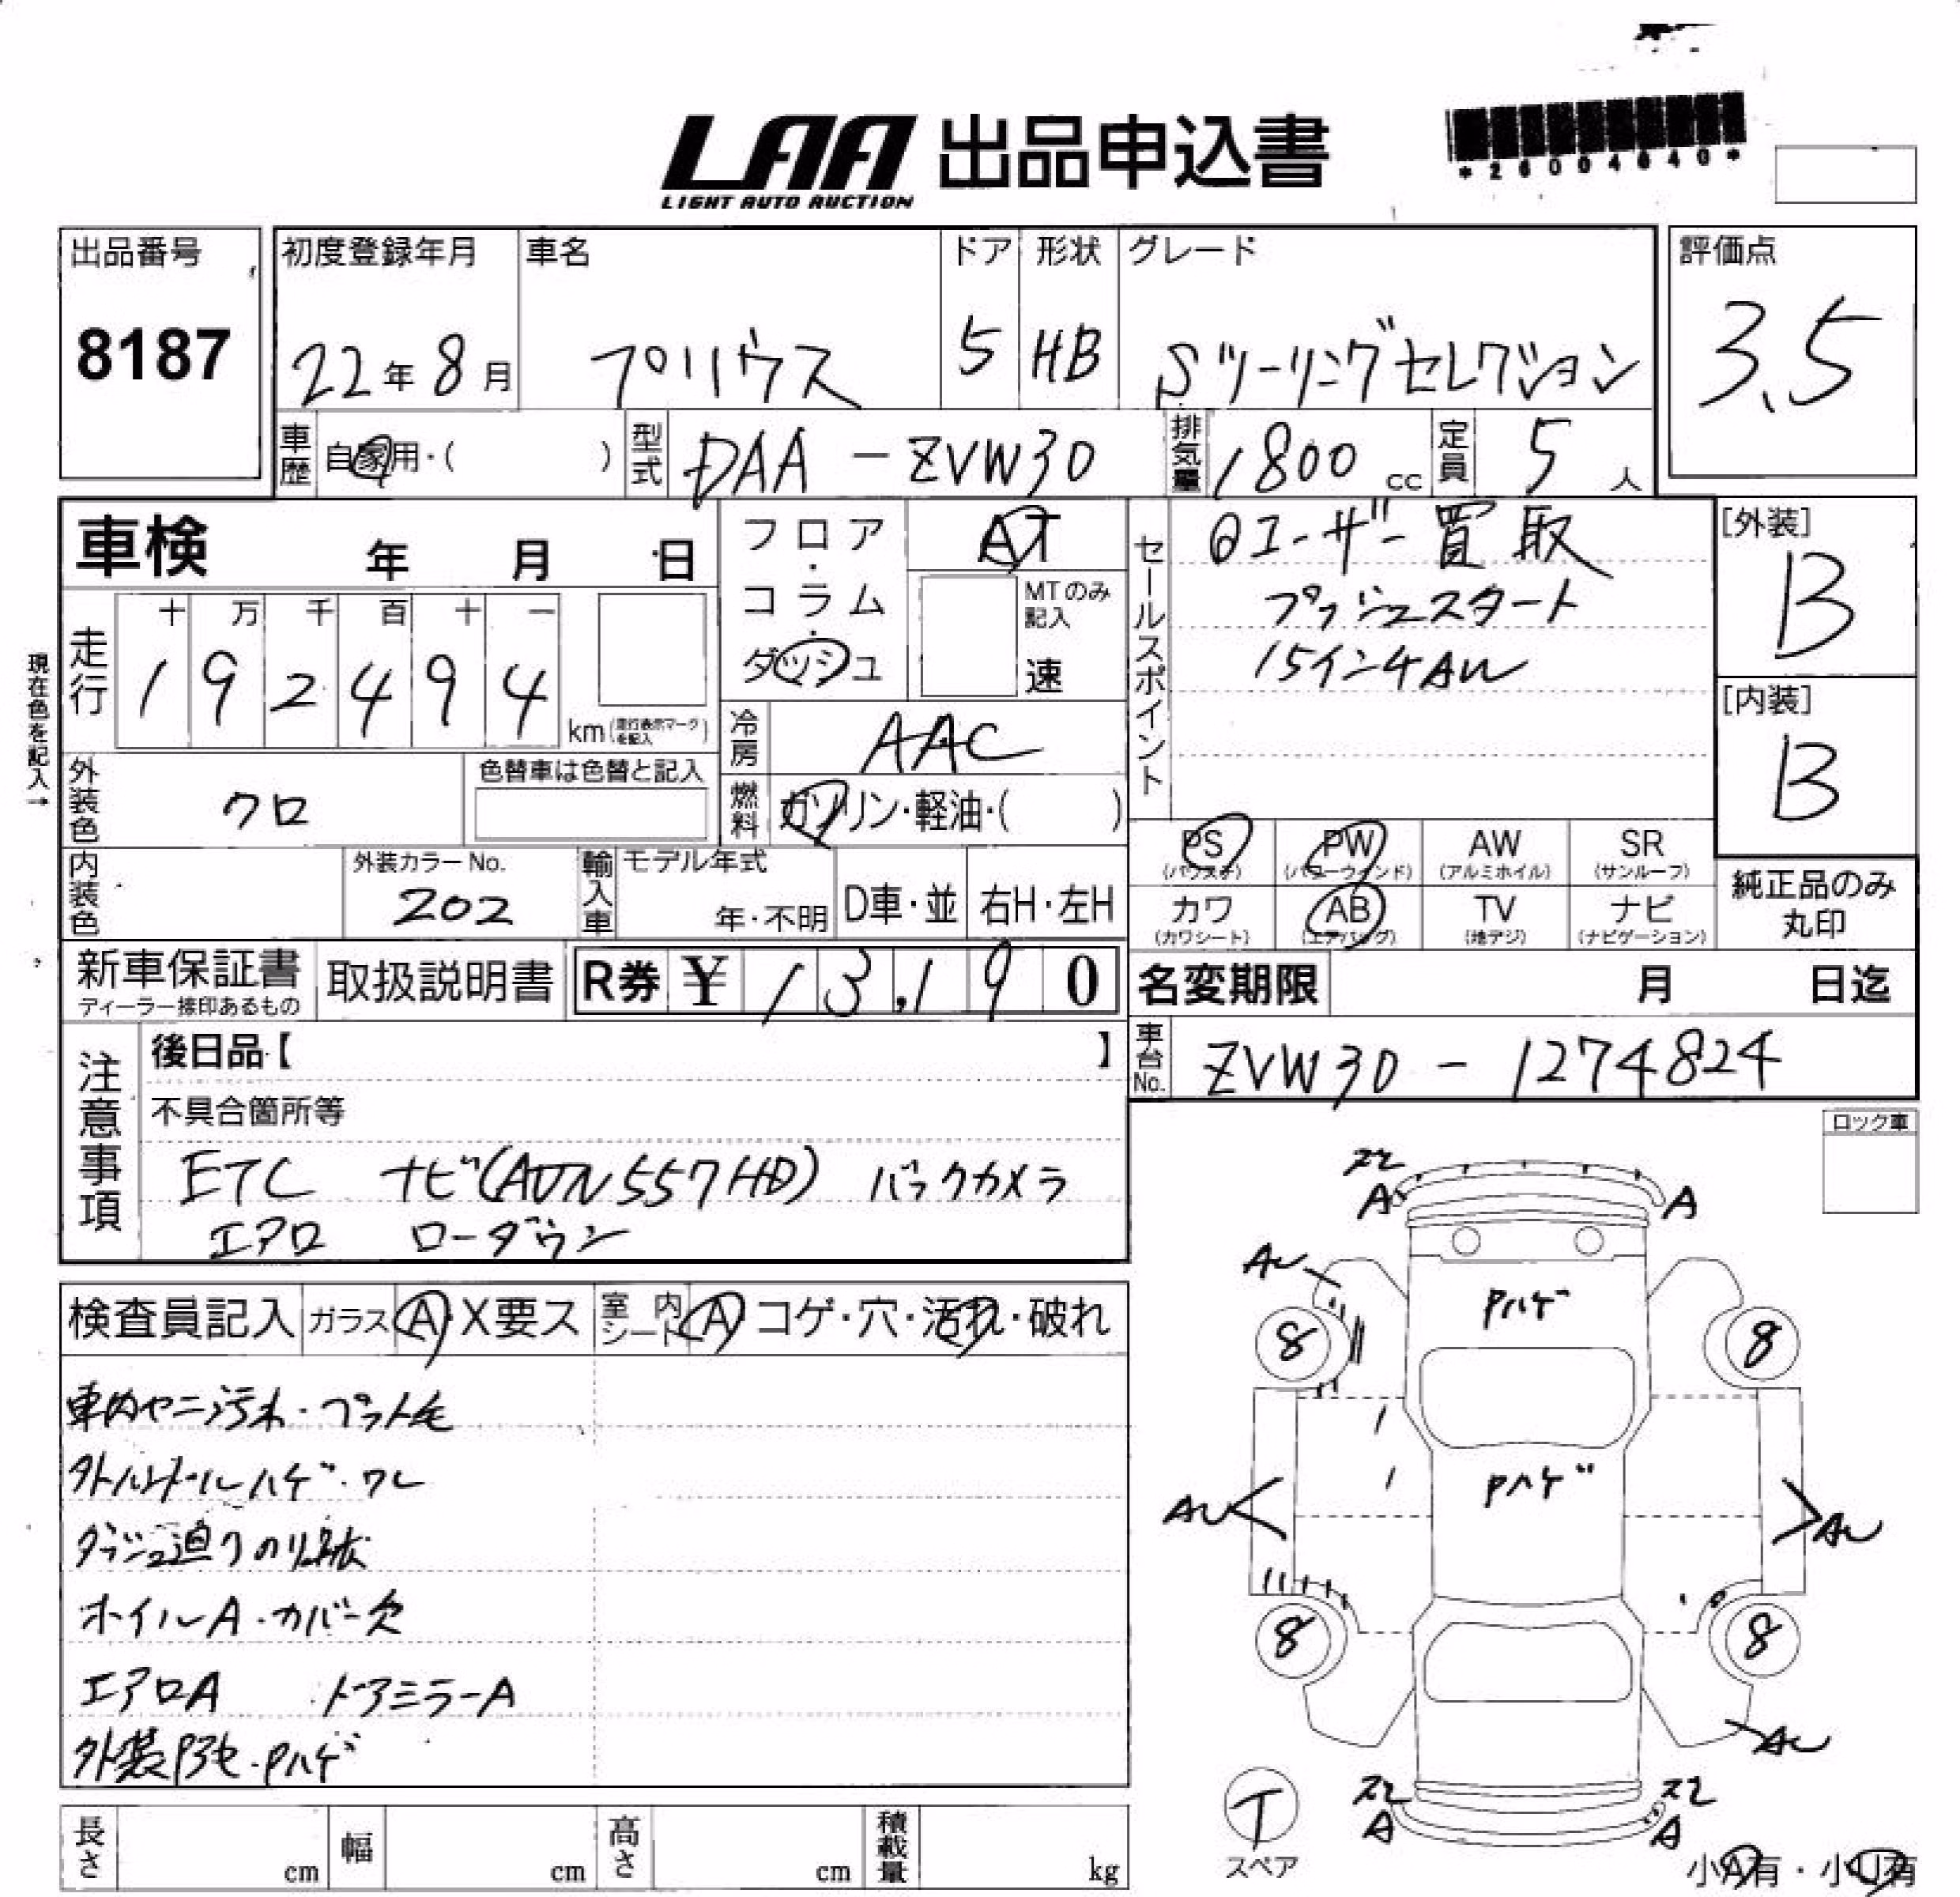 LAA 出品申込書
LIGHT AUTO AUCTION
*26004640*
出品番号
8187
初度登録年月
22年8月
車名
プリウス
ドア
5
形状
HB
グレード
Sツーリングセレクション
評価点
3.5
車歴
自家用・( )
型式
DAA-ZVW30
排気量
1800 cc
定員
5 人
車検 年 月 日
現在色を記入→
走行
十 万 千 百 十 一
1 9 2 4 9 4
km(走行表示マークを記入)
外装色
クロ
色替車は色替と記入
内装色
外装カラーNo.
202
フロア・コラム・ダッシュ
AT
MTのみ記入
速
冷房
AAC
燃料
ガソリン・軽油・( )
輸入車
モデル年式
年・不明
D車・並
右H・左H
セールスポイント
@ユーザー買取
プッシュスタート
15インチAW
[外装]
B
[内装]
B
PS
(パワステ)
PW
(パワーウインド)
AW
(アルミホイル)
SR
(サンルーフ)
カワ
(カワシート)
AB
(エアバッグ)
TV
(地デジ)
ナビ
(ナビゲーション)
純正品のみ丸印
新車保証書
ディーラー捺印あるもの
取扱説明書
R券 ¥ 13,190
名変期限 月 日迄
車台No.
ZVW30-1274824
注意事項
後日品【 】
不具合箇所等
ETC ナビ(AVN557HD) バックカメラ
エアロ ローダウン
検査員記入
ガラス A X要ス
室内シート A コゲ・穴・汚れ・破れ
車内ヤニ汚れ・ペット毛
ハンドルハゲ・ワレ
ダッシュ廻りのり跡
ホイルA・カバー欠
エアロA ドアミラーA
外装 Pハゲ
ロック車
スレ
A
A
AU
Pハゲ
8
8
Pハゲ
AU
AU
8
8
AU
スレ
A
スレ
A
T
スペア
小A有・小U有
長さ cm
幅 cm
高さ cm
積載量 kg